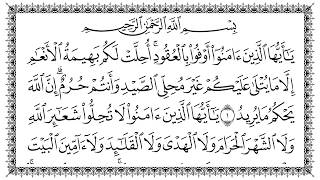 بِسْمِ ٱللَّهِ ٱلرَّحْمَٰنِ ٱلرَّحِيمِ
يَٰٓأَيُّهَا ٱلَّذِينَ ءَامَنُوٓا۟ أَوْفُوا۟ بِٱلْعُقُودِ ۚ أُحِلَّتْ لَكُم بَهِيمَةُ ٱلْأَنْعَٰمِ
إِلَّا مَا يُتْلَىٰ عَلَيْكُمْ غَيْرَ مُحِلِّى ٱلصَّيْدِ وَأَنتُمْ حُرُمٌ ۗ إِنَّ ٱللَّهَ
يَحْكُمُ مَا يُرِيدُ ۝١ يَٰٓأَيُّهَا ٱلَّذِينَ ءَامَنُوا۟ لَا تُحِلُّوا۟ شَعَٰٓئِرَ ٱللَّهِ
وَلَا ٱلشَّهْرَ ٱلْحَرَامَ وَلَا ٱلْهَدْىَ وَلَا ٱلْقَلَٰٓئِدَ وَلَآ ءَآمِّينَ ٱلْبَيْتَ